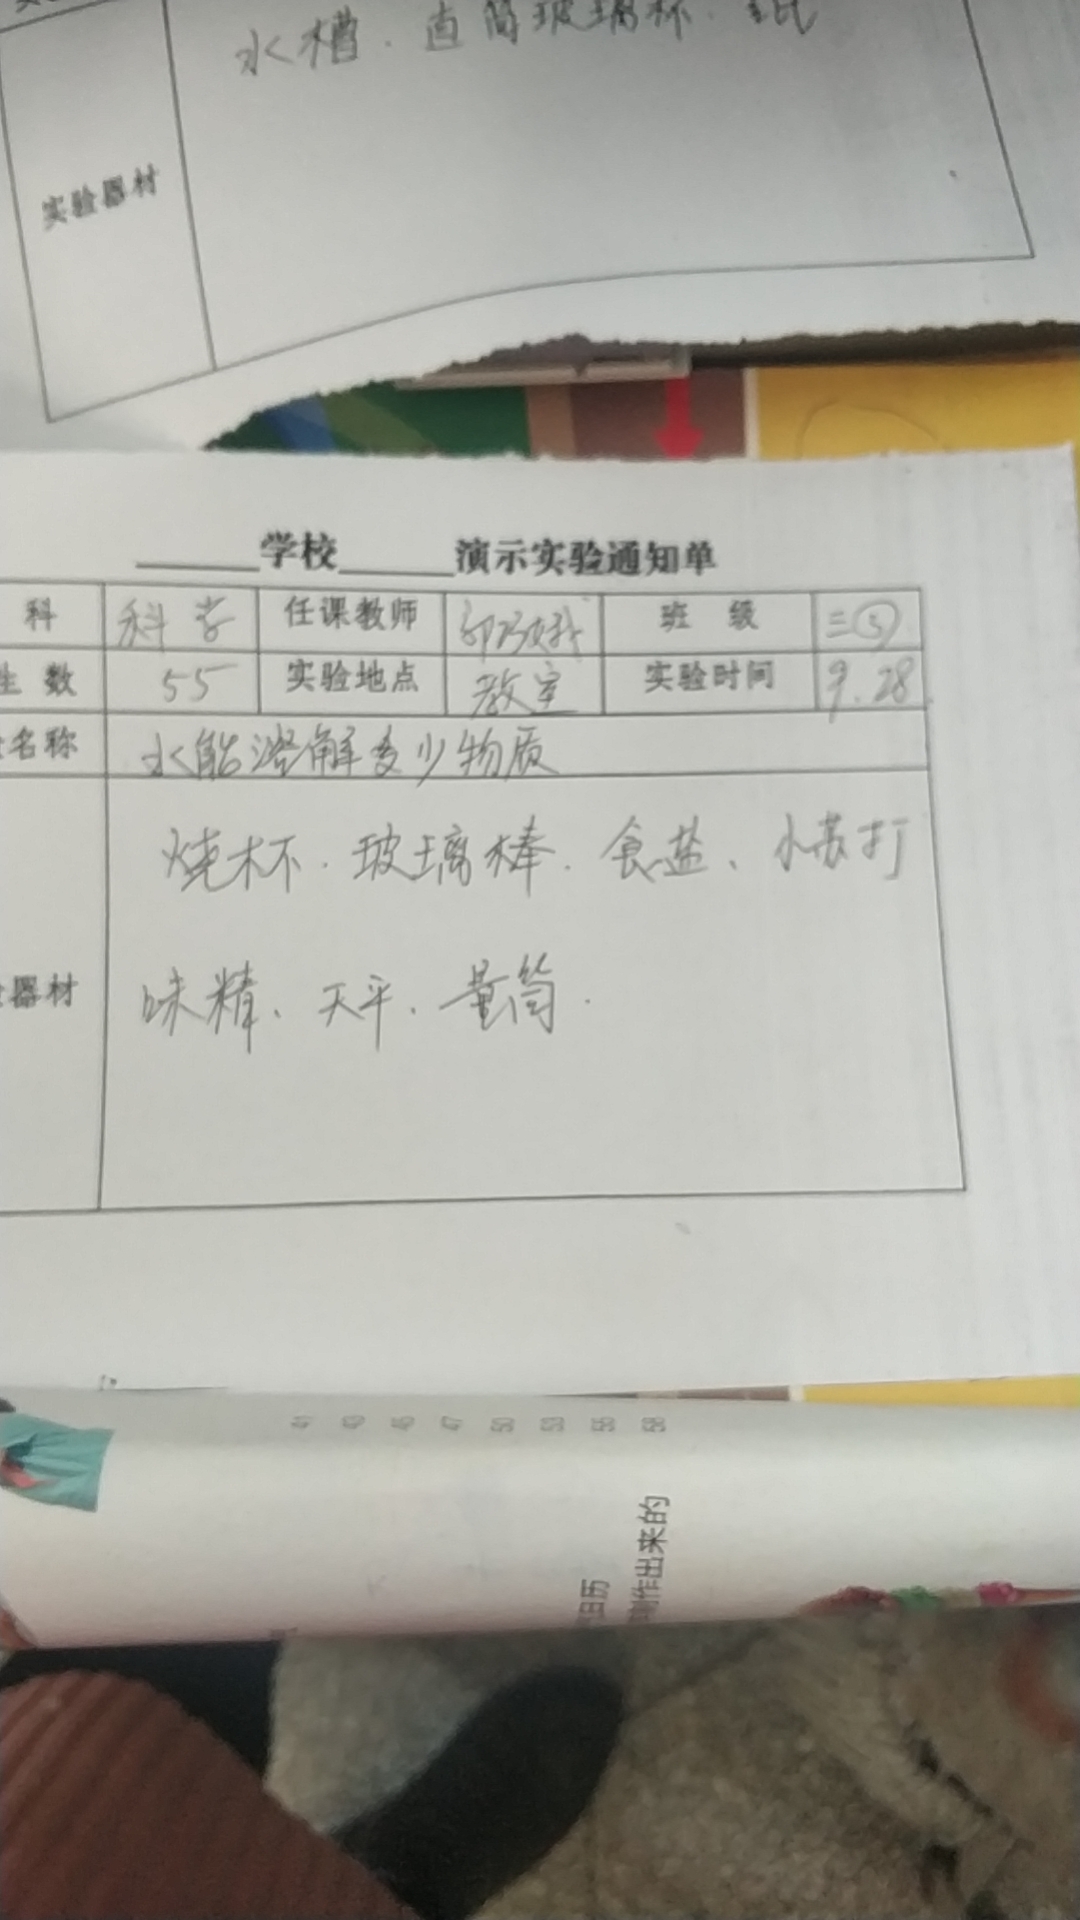 水槽.直筒玻璃杯.纸
实验器材
学校 演示实验通知单
科 科学 任课教师 班级 三⑤
生数 55 实验地点 教室 实验时间 9.28
名称 水能溶解多少物质
烧杯.玻璃棒.食盐、小苏打
器材 味精、天平、量筒.
41 43 46 47 50 53 55 58
制作出来的
日历